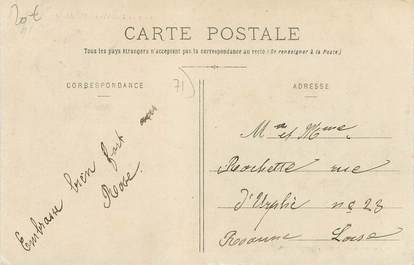 20€
CARTE POSTALE
Tous les pays étrangers n'acceptent pas la correspondance au recto (Se renseigner à la Poste)
CORRESPONDANCE
71)
ADRESSE
Embrasse bien fort
Rose.
Mr et Mme
Rochette rue
d'Urphé no 28
Roanne Loire